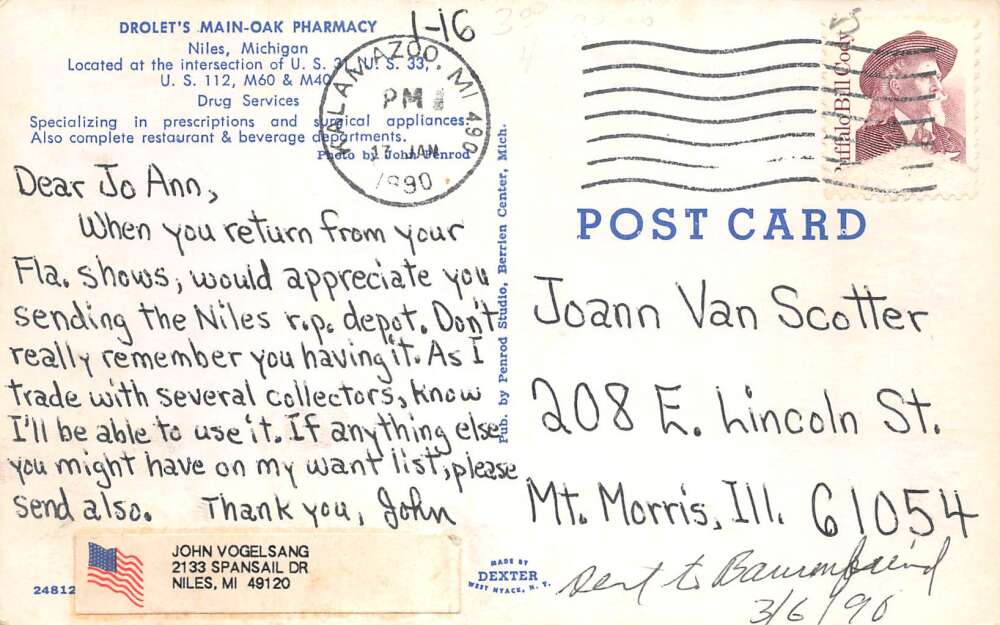 DROLET'S MAIN-OAK PHARMACY
Niles, Michigan
Located at the intersection of U. S. 31, U. S. 33,
U. S. 112, M60 & M40
Drug Services
Specializing in prescriptions and surgical appliances.
Also complete restaurant & beverage departments.
Photo by John Penrod
1-16
KALAMAZOO, MI 490
PM
17 JAN
1990
Buffalo Bill Cody
Dear Jo Ann,
When you return from your
Fla. shows, would appreciate you
sending the Niles r.p. depot. Don't
really remember you having it. As I
trade with several collectors, know
I'll be able to use it. If anything else
you might have on my want list, please
send also. Thank you, John
JOHN VOGELSANG
2133 SPANSAIL DR
NILES, MI 49120
24812
Pub. by Penrod Studio, Berrien Center, Mich.
MADE BY
DEXTER
WEST NYACK, N. Y.
POST CARD
Joann Van Scotter
208 E. Lincoln St.
Mt. Morris, Ill. 61054
sent to
3/6/90